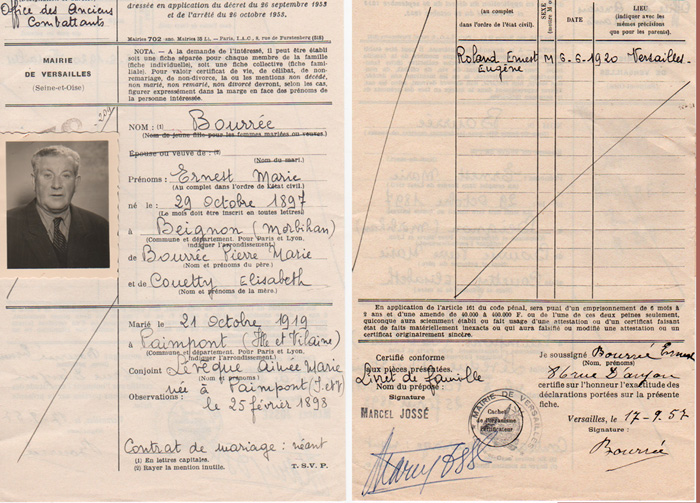 Office des Anciens
Combattants
MAIRIE
DE VERSAILLES
(Seine-et-Oise)
dressée en application du décret du 26 septembre 1953
et de l'arrêté du 26 octobre 1953.
NOTA. — A la demande de l'intéressé, il peut être établi
une fiche séparée pour chaque membre de la famille
(fiche individuelle), soit une fiche collective (fiche fami-
liale). Pour valoir certificat de vie, de célibat, de non-
remariage, de non-divorce, la ou les mentions non décédé,
non marié, non remarié, non divorcé devront, selon les cas,
figurer expressément dans la marge en face des prénoms de
la personne intéressée.
NOM : (1) Bourrée
(Nom de jeune fille pour les femmes mariées ou veuves)
Épouse ou veuve de : (2)
(Nom du mari)
Prénoms : Ernest Marie
(Au complet dans l'ordre de l'état civil.)
né le : 29 Octobre 1897
(Le mois doit être inscrit en toutes lettres)
à Beignon (Morbihan)
(Commune et département. Pour Paris et Lyon,
indiquer l'arrondissement.)
de Bourrée Pierre Marie
(Nom et prénoms du père.)
et de Couetty Elisabeth
(Nom et prénoms de la mère.)
Marié le 21 Octobre 1919
à Paimpont (Ille et Vilaine)
(Commune et département. Pour Paris et Lyon,
indiquer l'arrondissement.)
Conjoint Lévêque Aimée Marie
(Nom et prénoms)
née à Paimpont (I. et V)
Observations :
le 25 février 1898
Contrat de mariage : néant
(1) En lettres capitales.
(2) Rayer la mention inutile.
T. S. V. P.
(au complet
dans l'ordre de l'état civil)
SEXE
DATE
LIEU
(indiquer avec les
mêmes précisions
que pour les parents).
Roland Ernest M 6.6.1920 Versailles
Eugène
En application de l'article 161 du code pénal, sera puni d'un emprisonnement de 6 mois à
2 ans et d'une amende de 40.000 à 400.000 F. ou de l'une de ces deux peines seulement,
quiconque aura sciemment établi ou fait usage d'une attestation ou d'un certificat faisant
état de faits matériellement inexacts ou qui aura falsifié ou modifié une attestation ou un
certificat originairement sincère.
Certifié conforme
aux pièces présentées.
Livret de famille
Nom du préposé :
Signature
MARCEL JOSSÉ
MAIRIE DE VERSAILLES
Cachet
de l'organisme
certificateur
Je soussigné Bourrée Ernest
86 rue D'anjou
certifie sur l'honneur l'exactitude des
déclarations portées sur la présente
fiche.
Versailles, le 17-9.57
Signature :
Bourrée